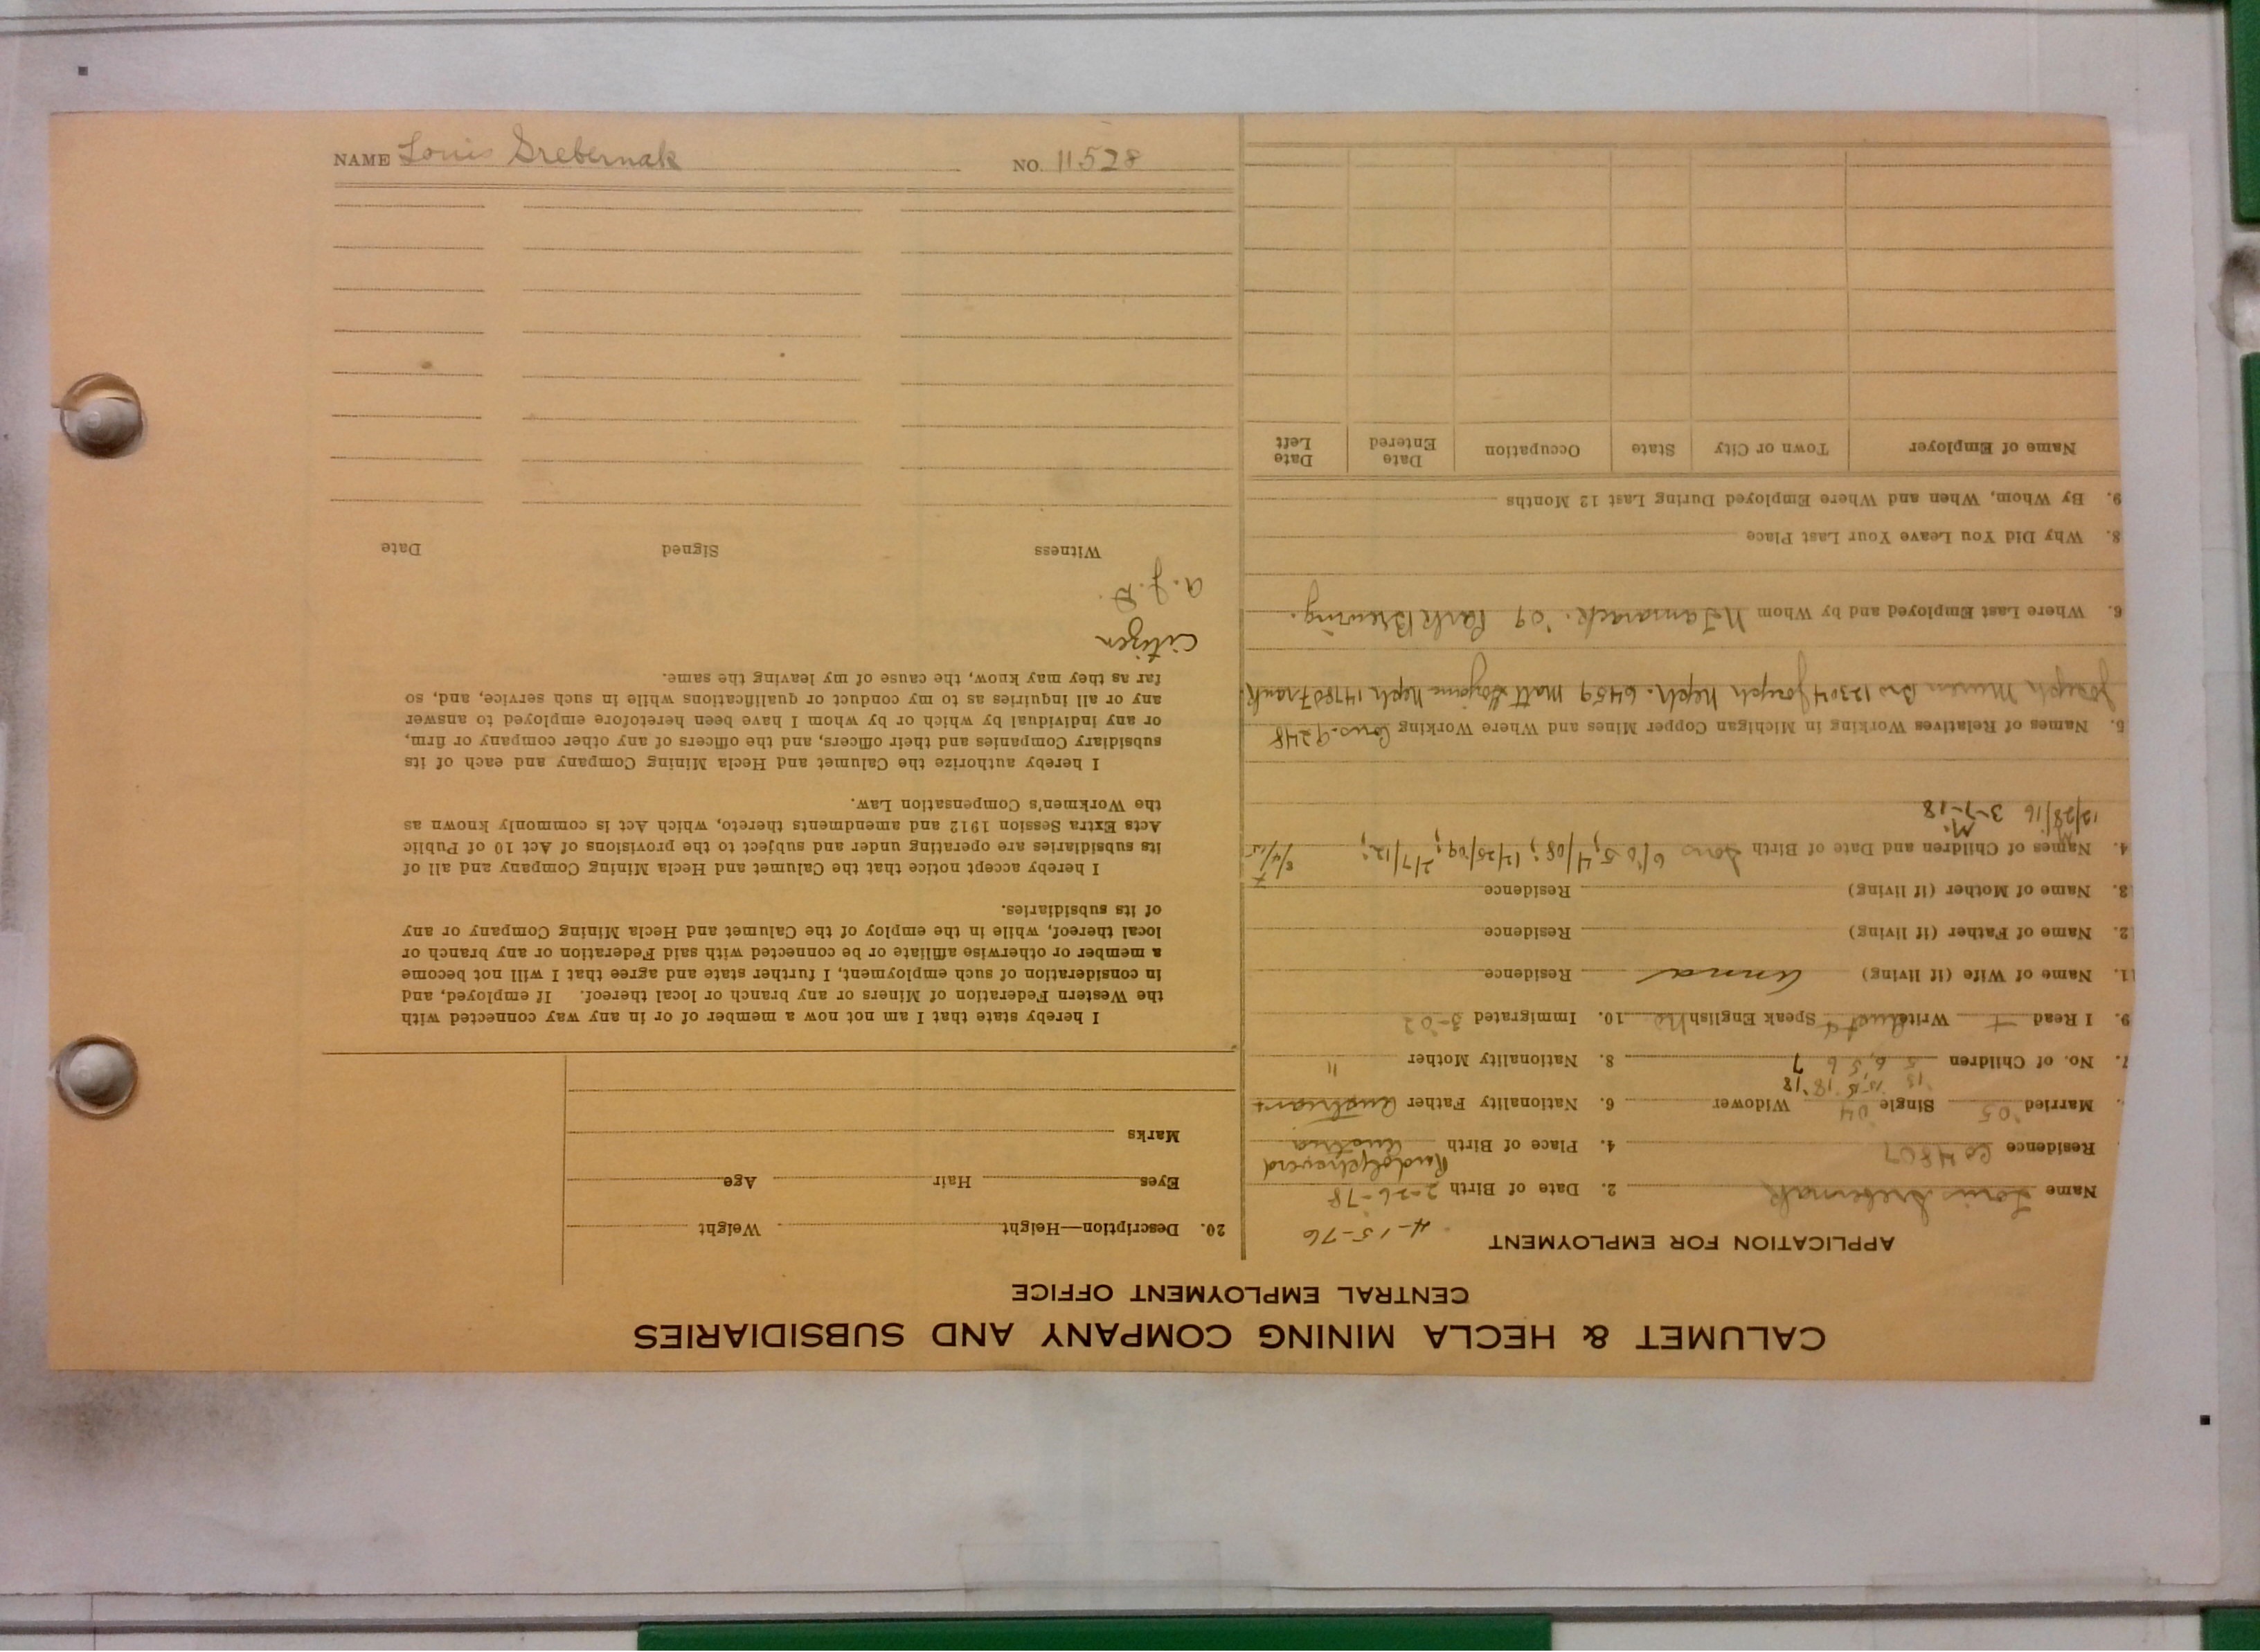 NAME Louis Srebernak NO. 11528
CALUMET & HECLA MINING COMPANY AND SUBSIDIARIES
CENTRAL EMPLOYMENT OFFICE
APPLICATION FOR EMPLOYMENT
4-15-76
Name Louis Srebernak 2. Date of Birth 2-26-78
Residence Co 4807 4. Place of Birth Austria
Married '05 Single '04 Widower 6. Nationality Father Austrian
'13 '15 '18 '18
7. No. of Children 5 6, 5 6 7 8. Nationality Mother "
9. I Read + Write Speak English No 10. Immigrated 3-02
11. Name of Wife (if living) Anna Residence
12. Name of Father (if living) Residence
13. Name of Mother (if living) Residence
4. Names of Children and Date of Birth 6/05, 4/08; 12/25/09; 2/7/12;
12/28/16 M. 3-7-18
5. Names of Relatives Working in Michigan Copper Mines and Where Working 9248
Joseph Muren Bro 12304 Joseph Neph. 6459 Matt Neph 14780 Frank
6. Where Last Employed and by Whom N. Tamarack. '09 Park Brewing.
8. Why Did You Leave Your Last Place
9. By Whom, When and Where Employed During Last 12 Months
Name of Employer Town or City State Occupation Date Entered Date Left
20. Description—Height Weight
Eyes Hair Age
Marks
I hereby state that I am not now a member of or in any way connected with
the Western Federation of Miners or any branch or local thereof. If employed, and
in consideration of such employment, I further state and agree that I will not become
a member or otherwise affiliate or be connected with said Federation or any branch or
local thereof, while in the employ of the Calumet and Hecla Mining Company or any
of its subsidiaries.
I hereby accept notice that the Calumet and Hecla Mining Company and all of
its subsidiaries are operating under and subject to the provisions of Act 10 of Public
Acts Extra Session 1912 and amendments thereto, which Act is commonly known as
the Workmen's Compensation Law.
I hereby authorize the Calumet and Hecla Mining Company and each of its
subsidiary Companies and their officers, and the officers of any other company or firm,
or any individual by which or by whom I have been heretofore employed to answer
any or all inquiries as to my conduct or qualifications while in such service, and, so
far as they may know, the cause of my leaving the same.
Citizen
a. J. D.
Witness Signed Date